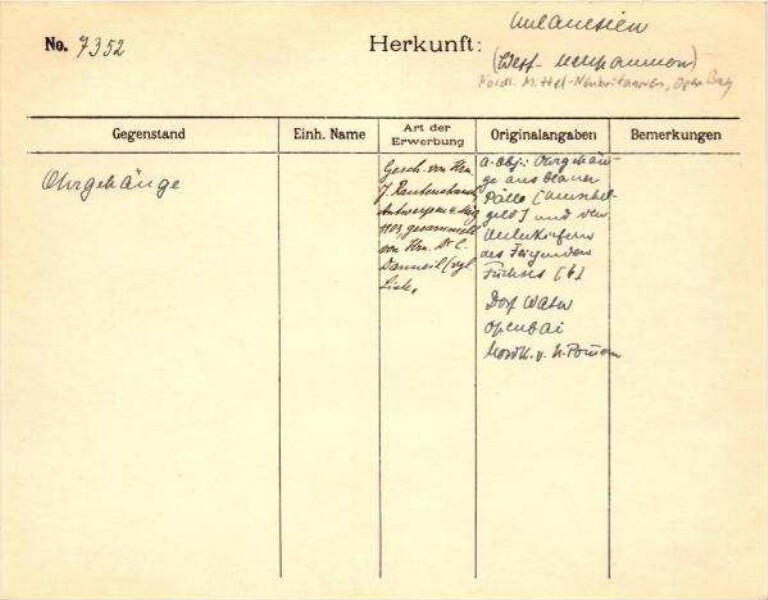 No. 7352
Herkunft: Melanesien
(West-Neupommern)
Nördl. Mittel-Neubritannien, Open Bay
Gegenstand
Einh. Name
Art der Erwerbung
Originalangaben
Bemerkungen
Ohrgehänge
Gesch. von Hrn.
J. Rautenstrauch
Antwerpen
1103, gesammelt
von Hrn. Dr C.
Danneil (vgl
Liste,
a. Obj.: Ohrgehän-
ge aus blauer
Palle (Muschel-
geld) und den
Unterkiefern
des fliegenden
Fuchses (b)
Dorf Watu
Openbai
Nordk. v. N. Pomm